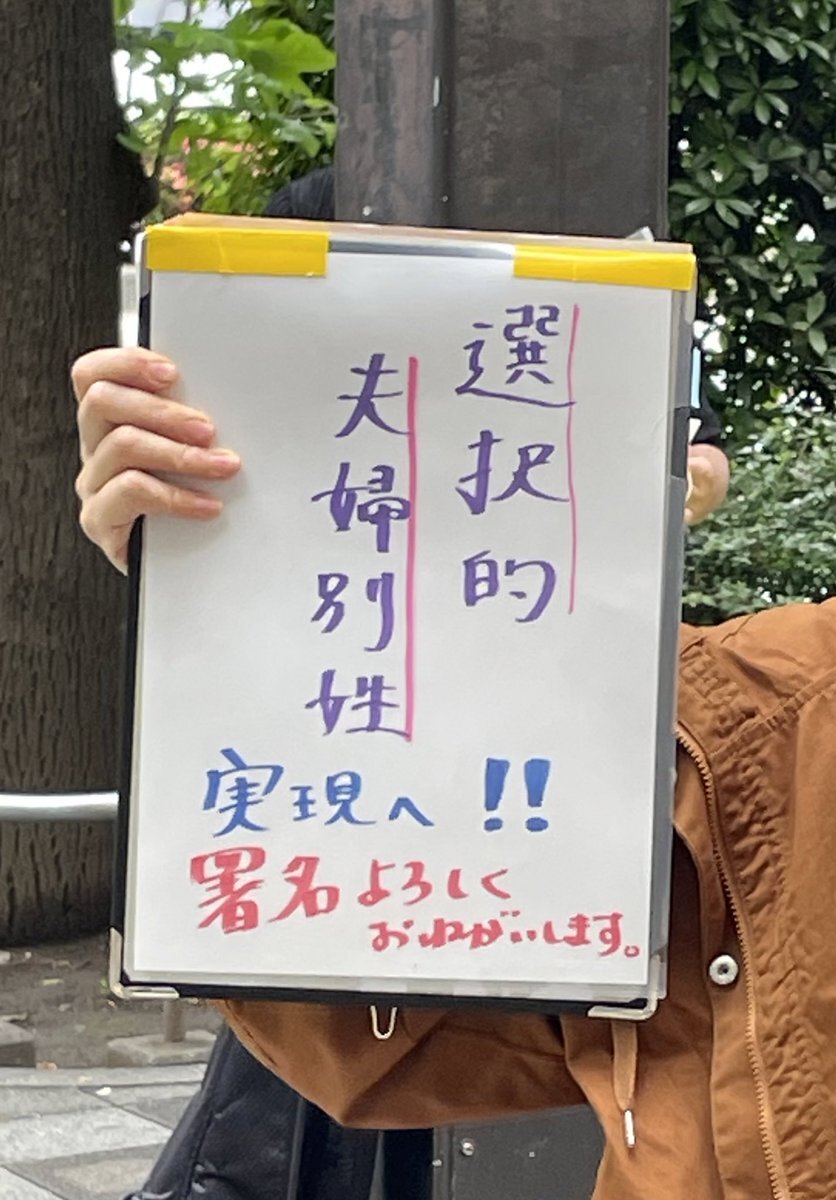 選択的
夫婦別姓
実現へ!!
署名よろしく
おねがいします。